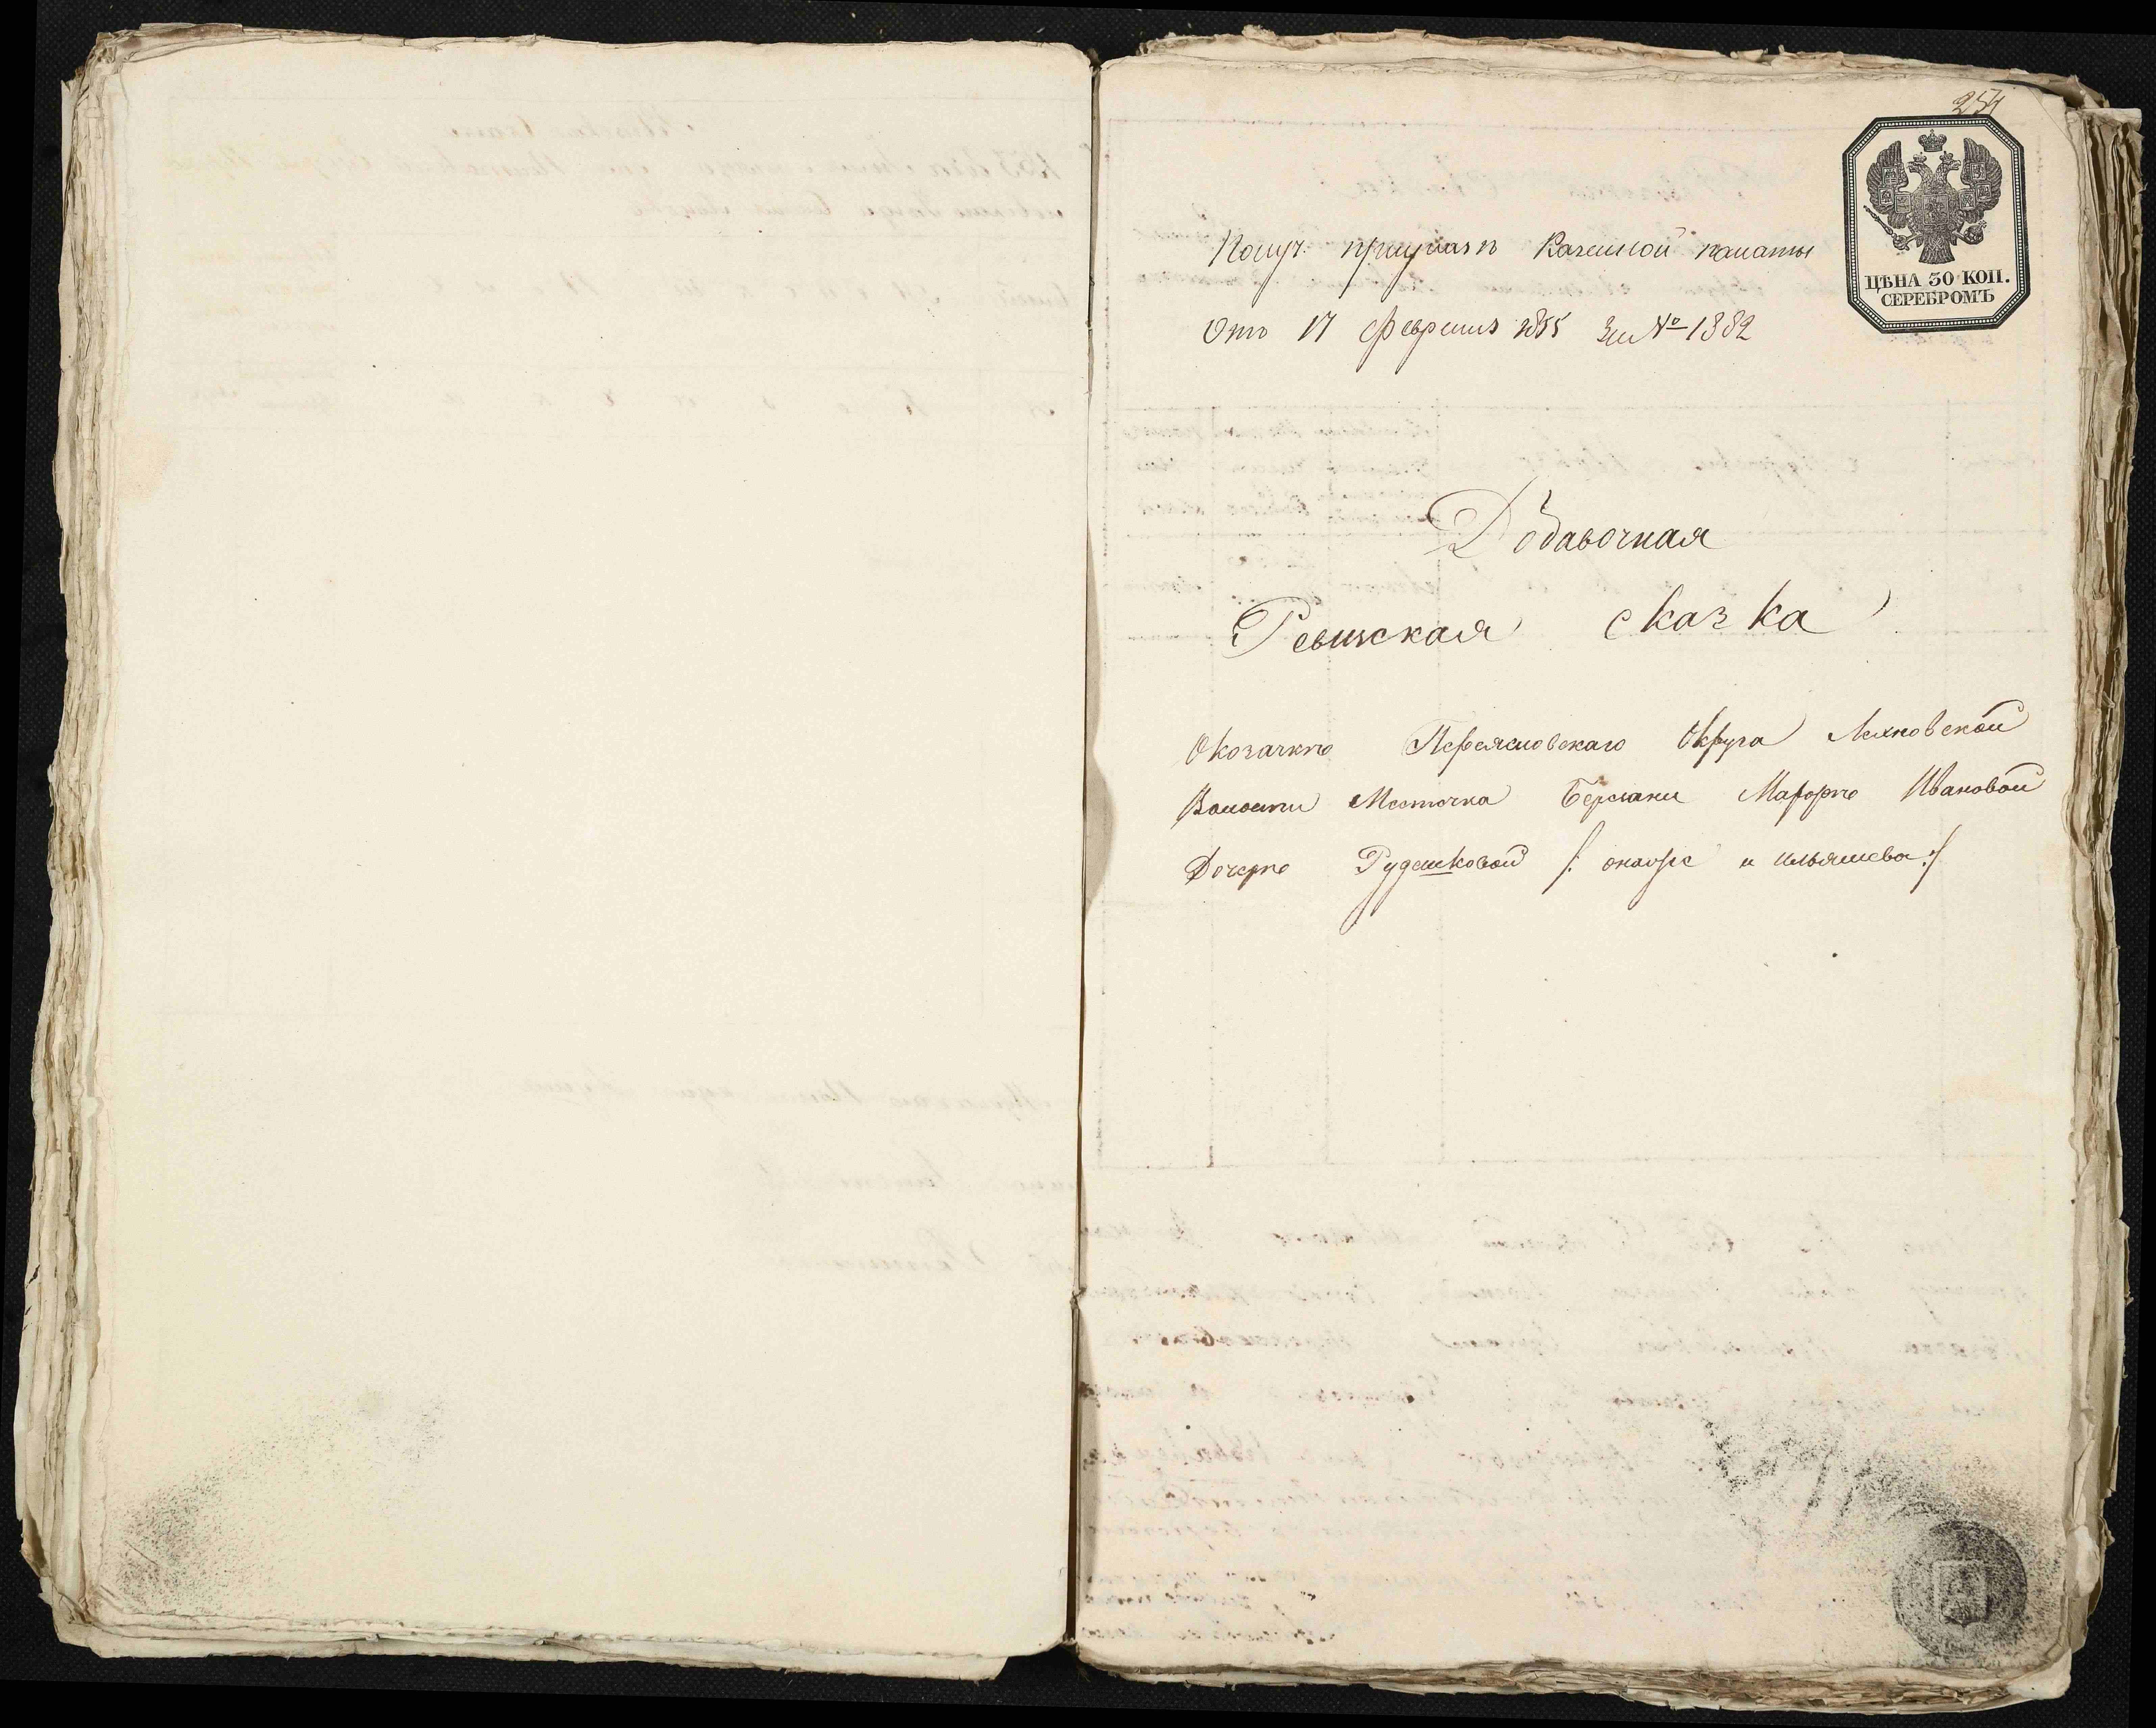 254
ЦѢНА 30 КОП.
СЕРЕБРОМЪ
Получ. при указѣ Казенной палаты
Отъ 17 Февраля 1855 За № 1382
Добавочная
Ревизская сказка
О козачкѣ Переясловскаго Округа Лехновской
Волости Месточка Березани Марфѣ Ивановой
Дочерѣ Руденковой /: онаже и Ильяшева :/